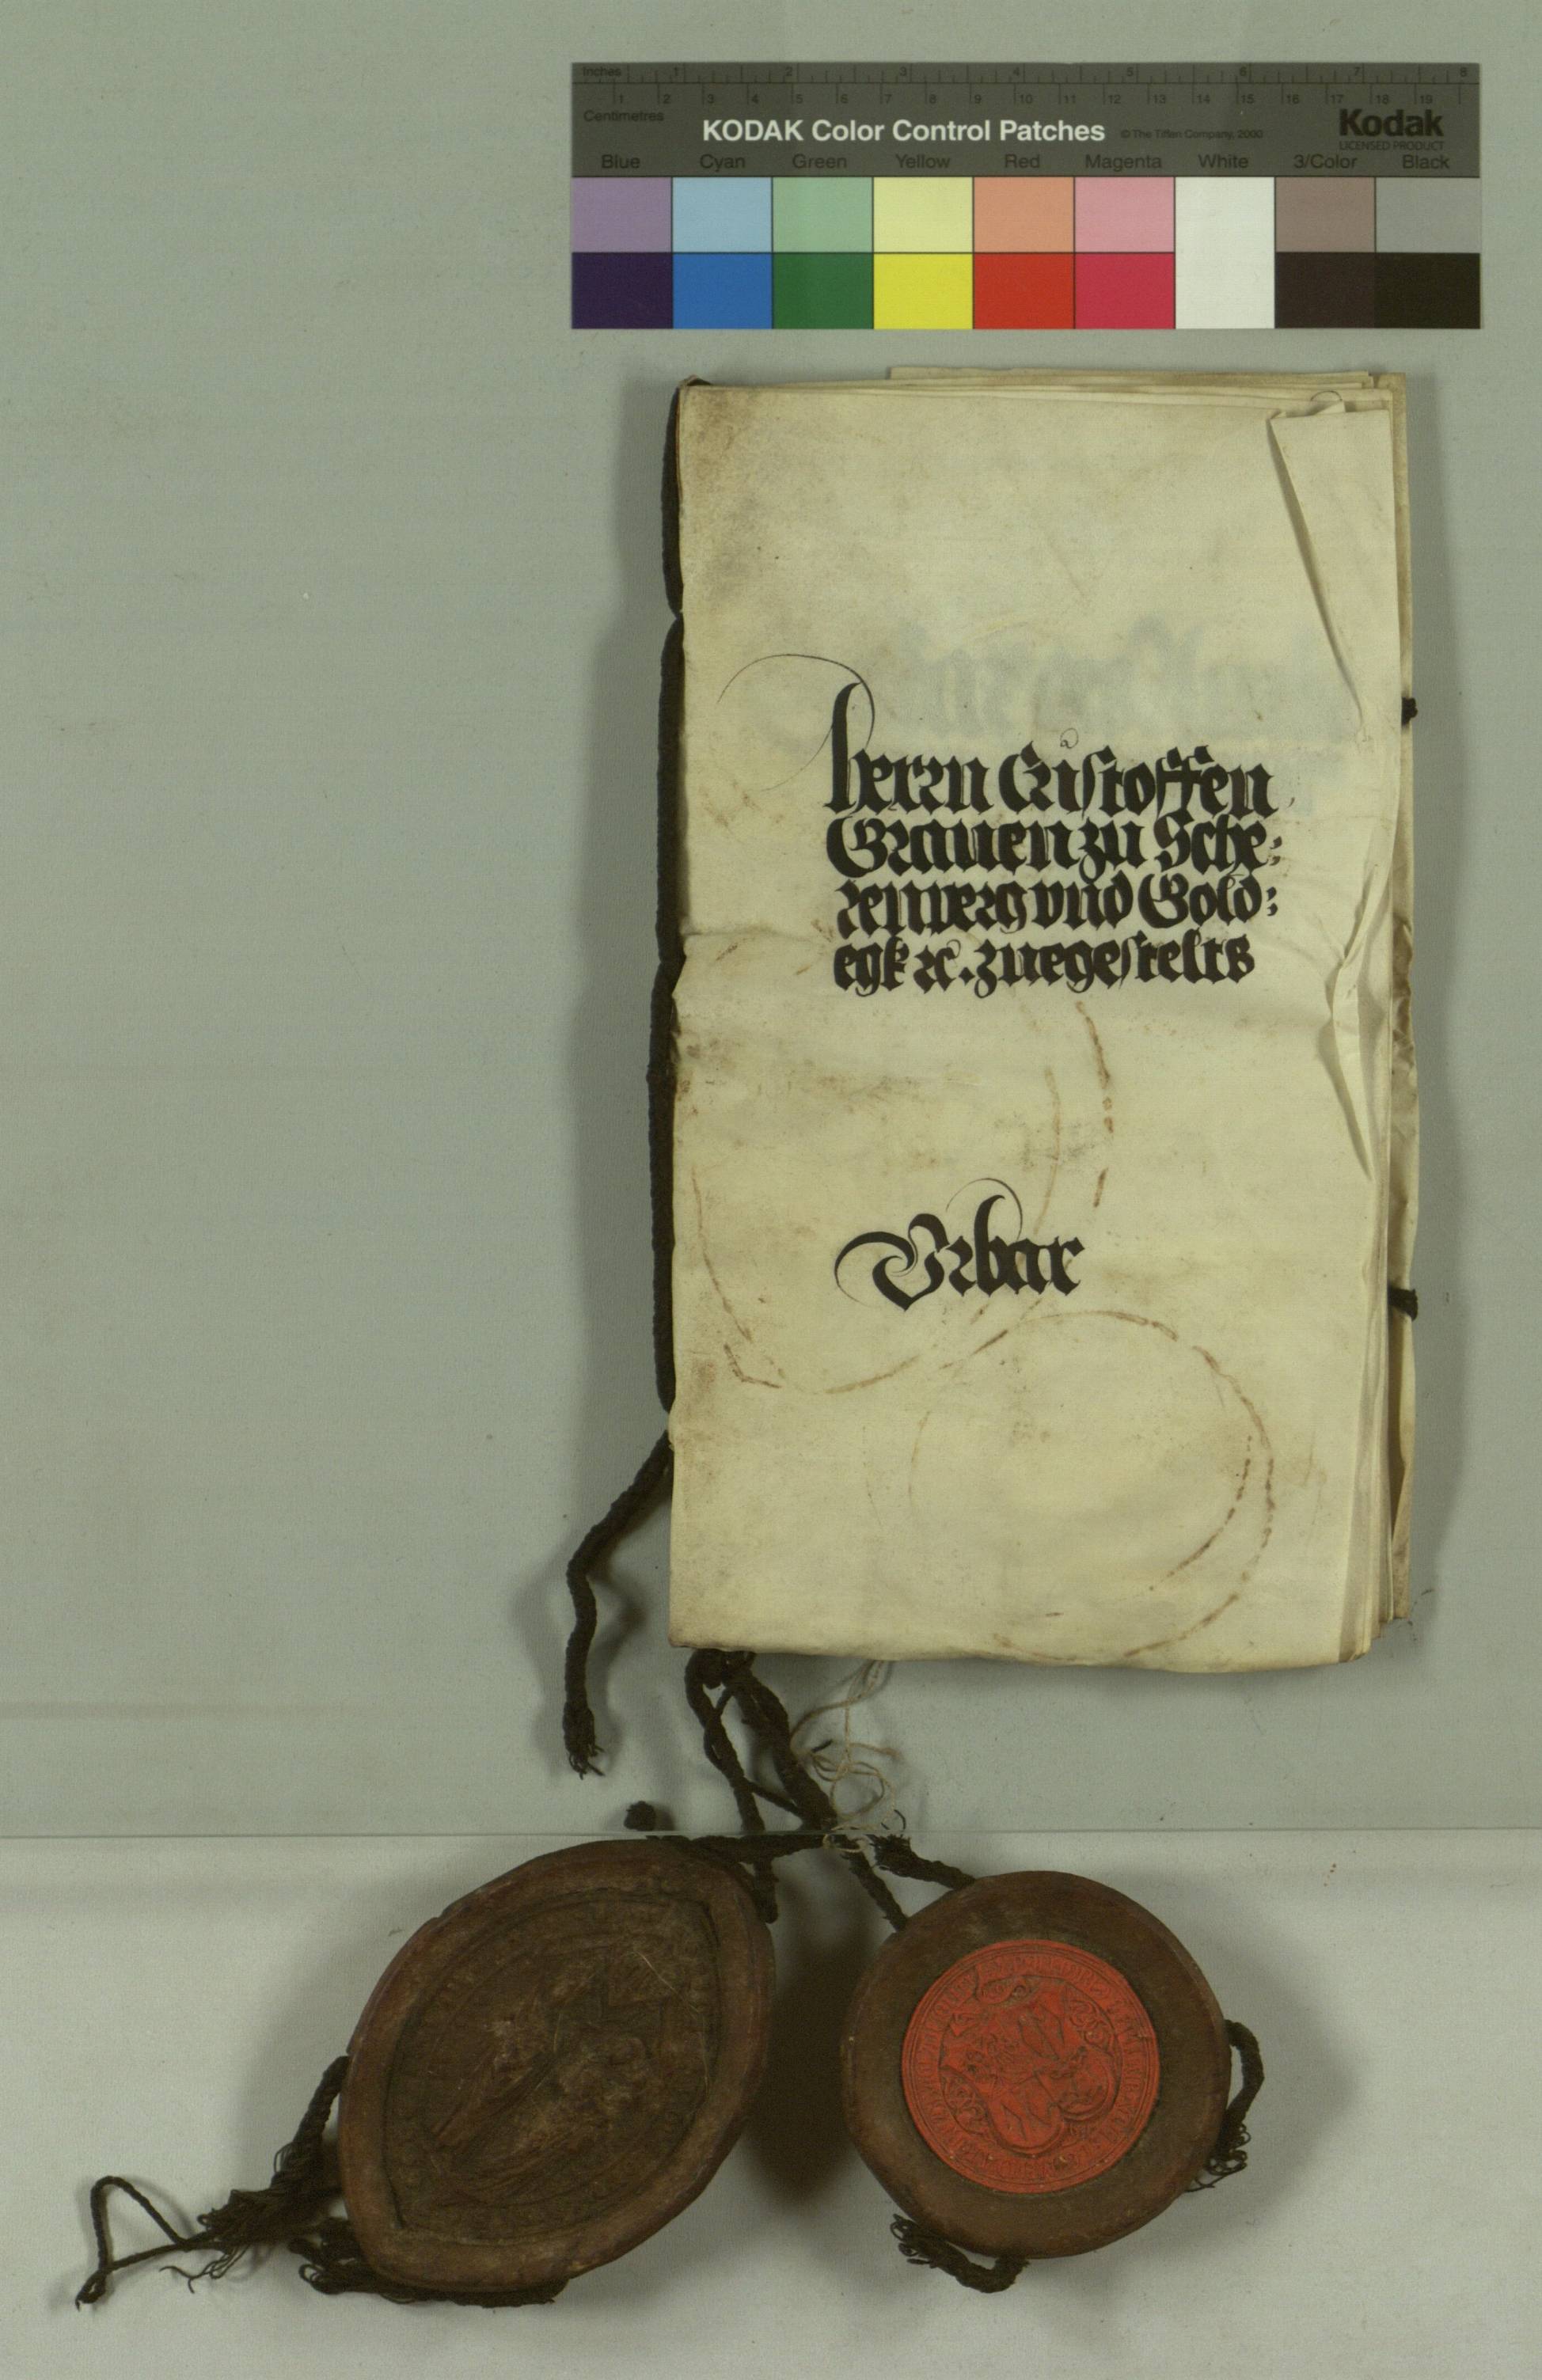 Inches 1 2 3 4 5 6 7 8
1 2 3 4 5 6 7 8 9 10 11 12 13 14 15 16 17 18 19
Centimetres
KODAK Color Control Patches © The Tiffen Company, 2000 Kodak
LICENSED PRODUCT
Blue Cyan Green Yellow Red Magenta White 3/Color Black
herrn Cristoffen
Grauen zu Sche:
renberg vnd Gold:
egk ꝛc. zuegestelts
Vrbar